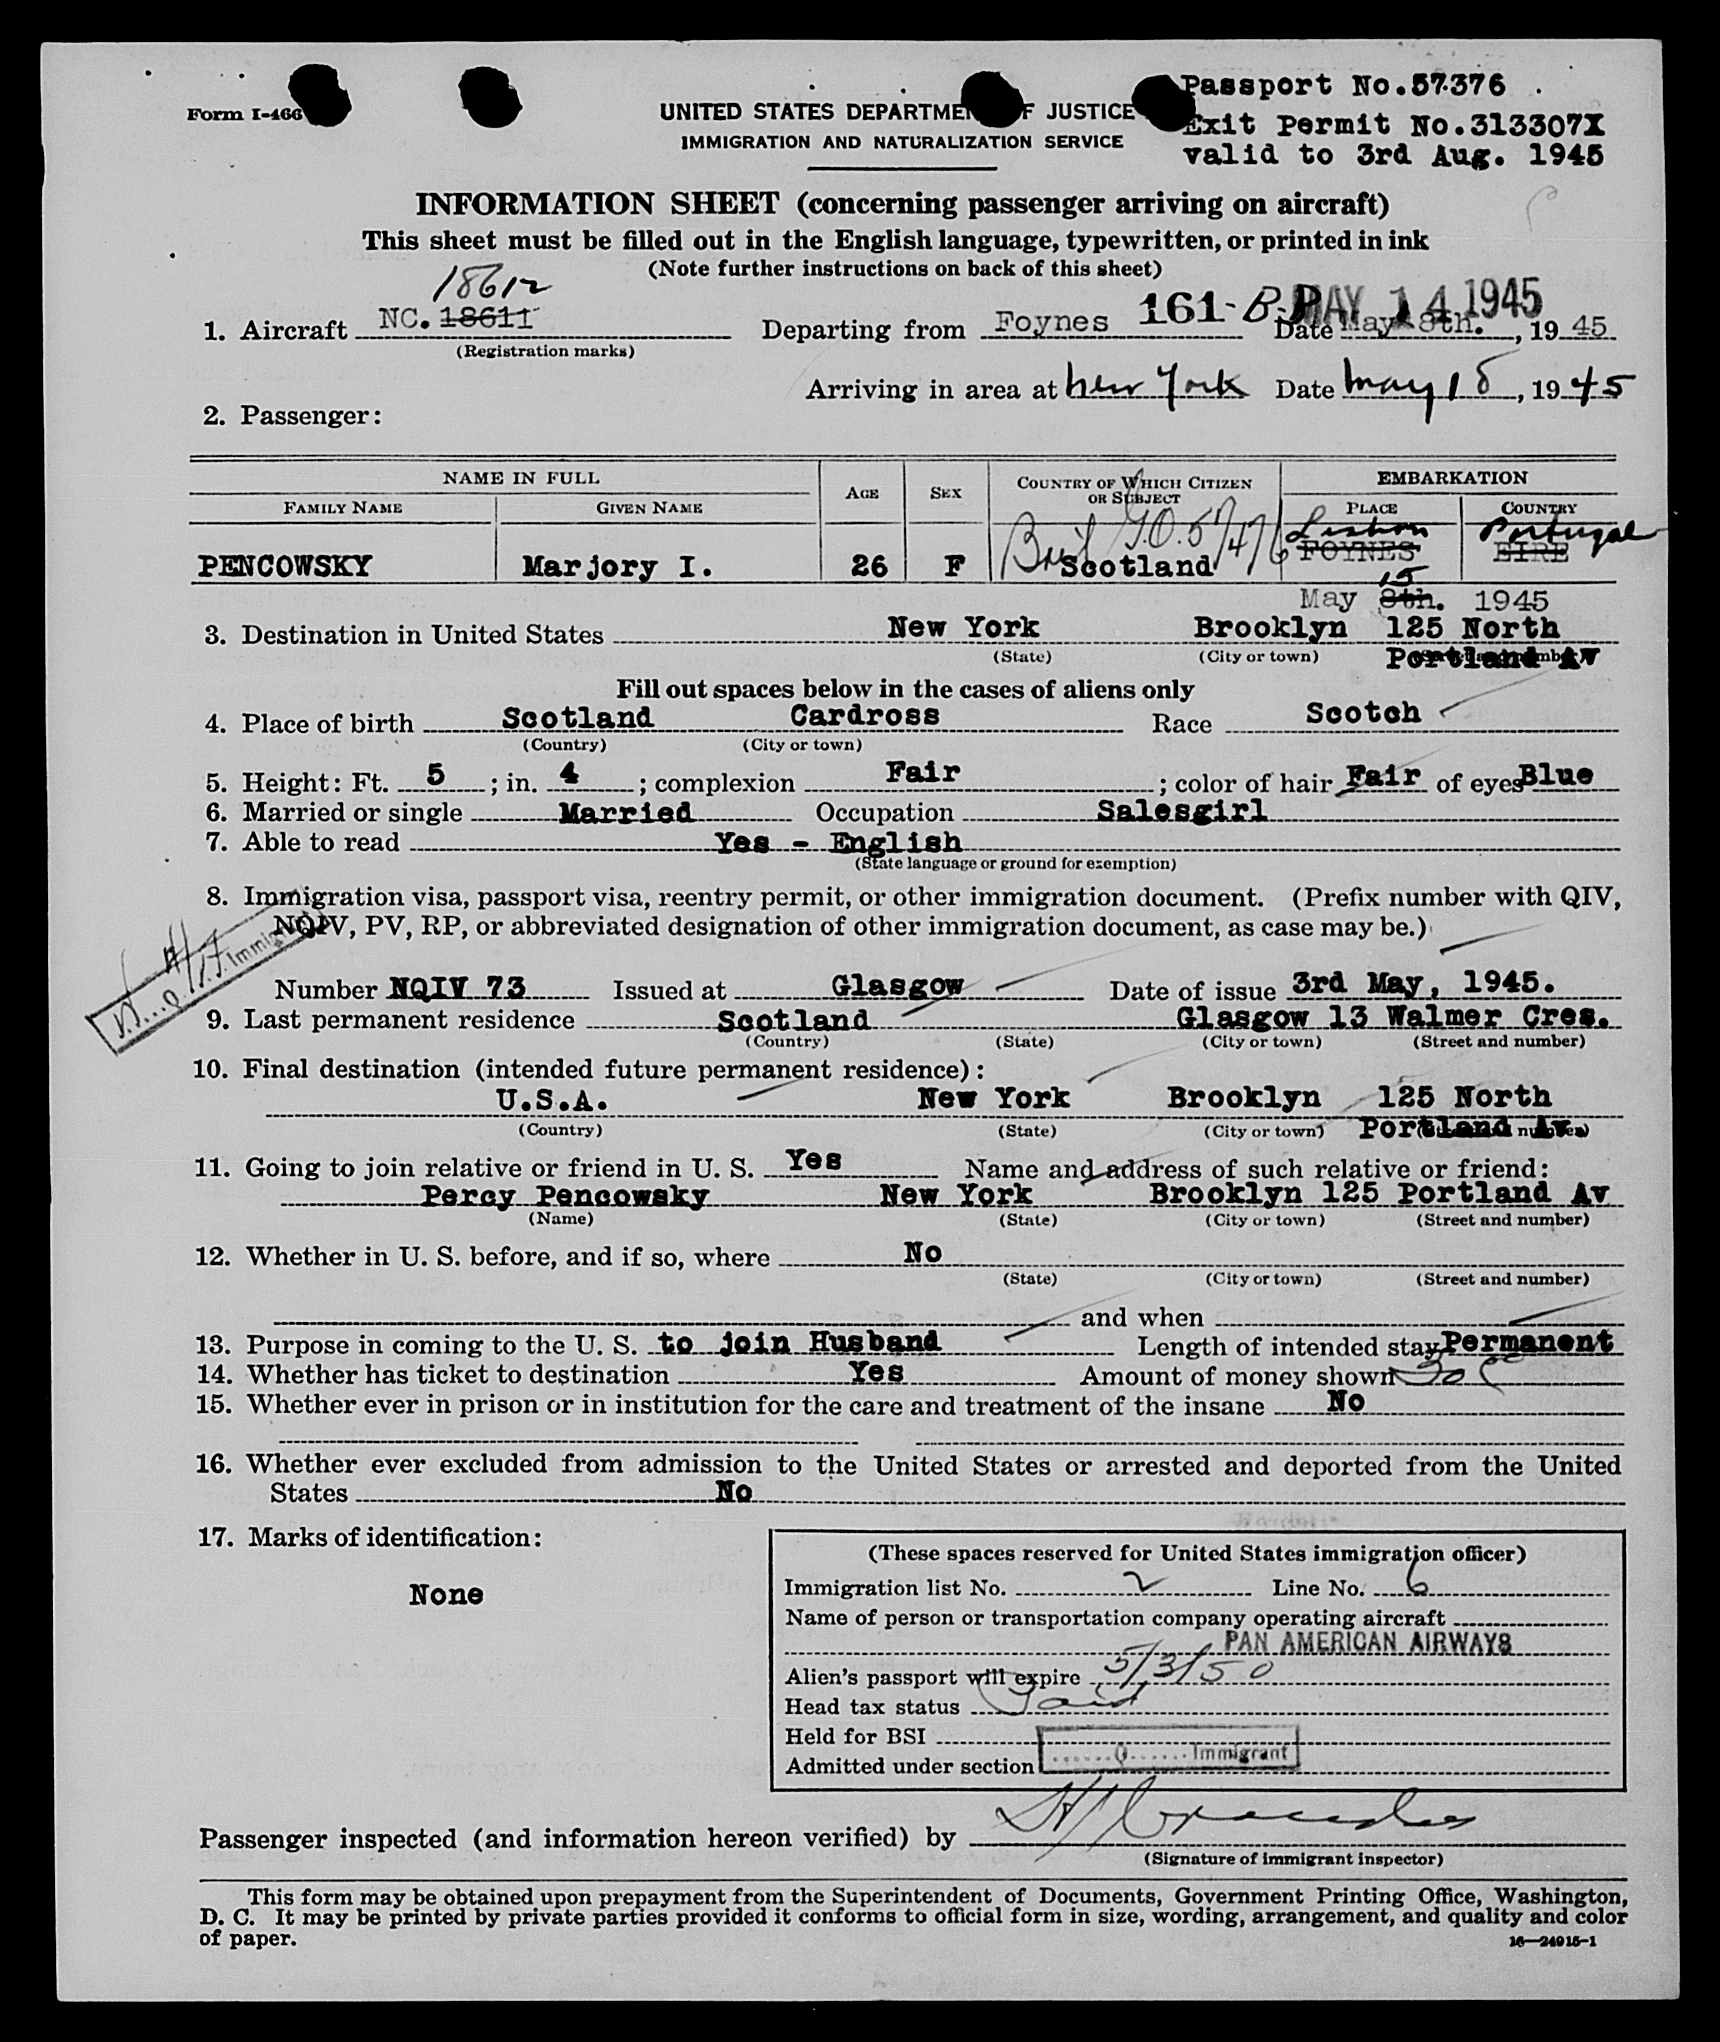 Passport No.57376
Form I-466
UNITED STATES DEPARTMENT OF JUSTICE
Exit Permit No.313307X
IMMIGRATION AND NATURALIZATION SERVICE
valid to 3rd Aug. 1945
INFORMATION SHEET (concerning passenger arriving on aircraft)
This sheet must be filled out in the English language, typewritten, or printed in ink
(Note further instructions on back of this sheet)
18612
161-B.P MAY 14 1945
1. Aircraft NC. 18611 Departing from Foynes Date May 8th. , 19 45
(Registration marks)
Arriving in area at New York Date May 18 , 19 45
2. Passenger:
NAME IN FULL AGE SEX COUNTRY OF WHICH CITIZEN OR SUBJECT EMBARKATION
FAMILY NAME GIVEN NAME PLACE COUNTRY
Lisbon Portugal
PENCOWSKY Marjory I. 26 F Scotland FOYNES EIRE
15
May 8th. 1945
3. Destination in United States New York Brooklyn 125 North
(State) (City or town) Portland Av
Fill out spaces below in the cases of aliens only
4. Place of birth Scotland Cardross Race Scotch
(Country) (City or town)
5. Height: Ft. 5 ; in. 4 ; complexion Fair ; color of hair Fair of eyes Blue
6. Married or single Married Occupation Salesgirl
7. Able to read Yes - English
(State language or ground for exemption)
8. Immigration visa, passport visa, reentry permit, or other immigration document. (Prefix number with QIV,
NQIV, PV, RP, or abbreviated designation of other immigration document, as case may be.)
Number NQIV 73 Issued at Glasgow Date of issue 3rd May, 1945.
9. Last permanent residence Scotland Glasgow 13 Walmer Cres.
(Country) (State) (City or town) (Street and number)
10. Final destination (intended future permanent residence):
U.S.A. New York Brooklyn 125 North
(Country) (State) (City or town) Portland Av.
11. Going to join relative or friend in U. S. Yes Name and address of such relative or friend:
Percy Pencowsky New York Brooklyn 125 Portland Av
(Name) (State) (City or town) (Street and number)
12. Whether in U. S. before, and if so, where No
(State) (City or town) (Street and number)
and when
13. Purpose in coming to the U. S. to join Husband Length of intended stay Permanent
14. Whether has ticket to destination Yes Amount of money shown
15. Whether ever in prison or in institution for the care and treatment of the insane No
16. Whether ever excluded from admission to the United States or arrested and deported from the United
States No
17. Marks of identification:
None
(These spaces reserved for United States immigration officer)
Immigration list No. 2 Line No. 6
Name of person or transportation company operating aircraft
PAN AMERICAN AIRWAYS
Alien's passport will expire 5/3/50
Head tax status Paid
Held for BSI
Admitted under section ......Q......Immigrant
Passenger inspected (and information hereon verified) by
(Signature of immigrant inspector)
This form may be obtained upon prepayment from the Superintendent of Documents, Government Printing Office, Washington,
D. C. It may be printed by private parties provided it conforms to official form in size, wording, arrangement, and quality and color
of paper.
16—24915-1